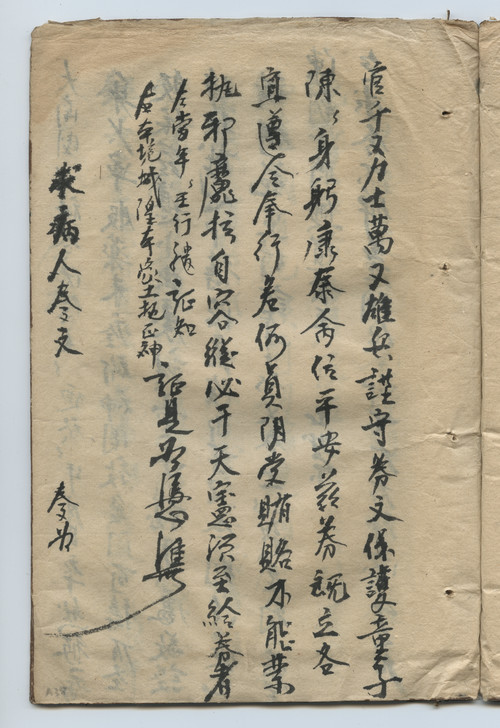 官千又力士萬又雄兵謹守券文保護童子
陳〻身躬康泰命位平安茲券既立各
宜遵令奉行若何員陰党賄賂不能禁
邪魔擅自容縱必干天憲須至給券者
左當年〻王行譴証知
右本境城隍本家土地正神証見為憑據
求病人奏文
奏為